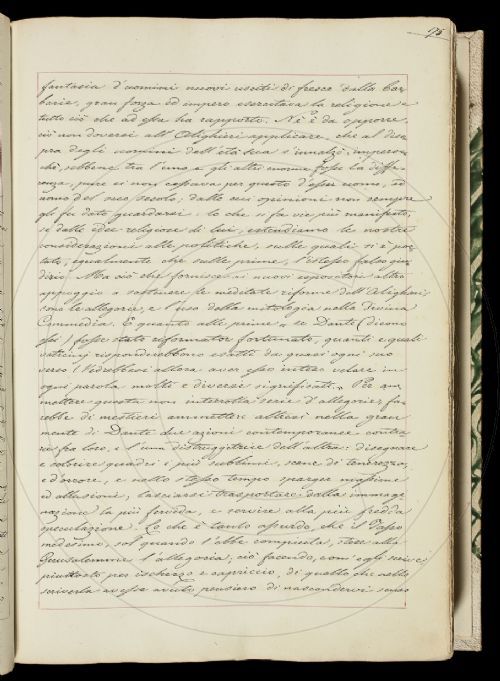 95
fantasia d'uomini nuovi usciti di fresco dalla bar
barie, gran forza ed impero esercitava la religione e
tutto ciò che ad essa ha rapporto. Nè è da opporre
ciò non doversi all'Alighieri applicare, che al diso
pra degli uomini dell'età sua s'innalzò; imperoc
chè, sebbene tra l'uno e gli altri enorme fosse la diffe
renza, pure ei non cessava per questo d'esser uomo, ed
uomo del suo secolo; dalle cui opinioni non sempre
gli fu dato guardarsi: lo che si fa vie più manifesto,
se dalle idee religiose di lui, estendiamo le nostre
considerazioni alle politiche, sulle quali si è por
tato, egualmente che sulle prime, l'istesso falso giu
dizio. Ma ciò che fornisce ai nuovi espositori altro
appoggio a sostenere le meditate riforme dell'Alighieri,
sono le allegorie, e l'uso della mitologia nella Divina
Commedia. E quanto alle prime, se Dante (dicono
essi) fosse stato riformator fortunato, quanti e quali
vaticinj risponderebbono esatti da quasi ogni suo
verso! Vedrebbesi allora aver esso inteso velare in
ogni parola molti e diversi significati. Per am
mettere questa non interrotta serie d'allegorie, fa
rebbe di mestieri ammettere altresì nella gran
mente di Dante due azioni contemporanee contra
rie fra loro, e l'una distruggitrice dell'altra: disegnare
e colorire quadri i più sublimi, scene di tenerezza,
e d'orrore, e nello stesso tempo sparger massime
ed allusioni, lasciarsi trasportare dalla immagi
nazione la più fervida, e servire alla più fredda
speculazione. Lo che è tanto assurdo, che il Tasso
medesimo, sol quando l'ebbe compiuta, diede alla
Gerusalemme l'allegoria; ciò facendo, com'egli scrive,
piuttosto per ischerzo e capriccio, di quello che nello
scriverla avesse avuto pensiero di nascondervi senso